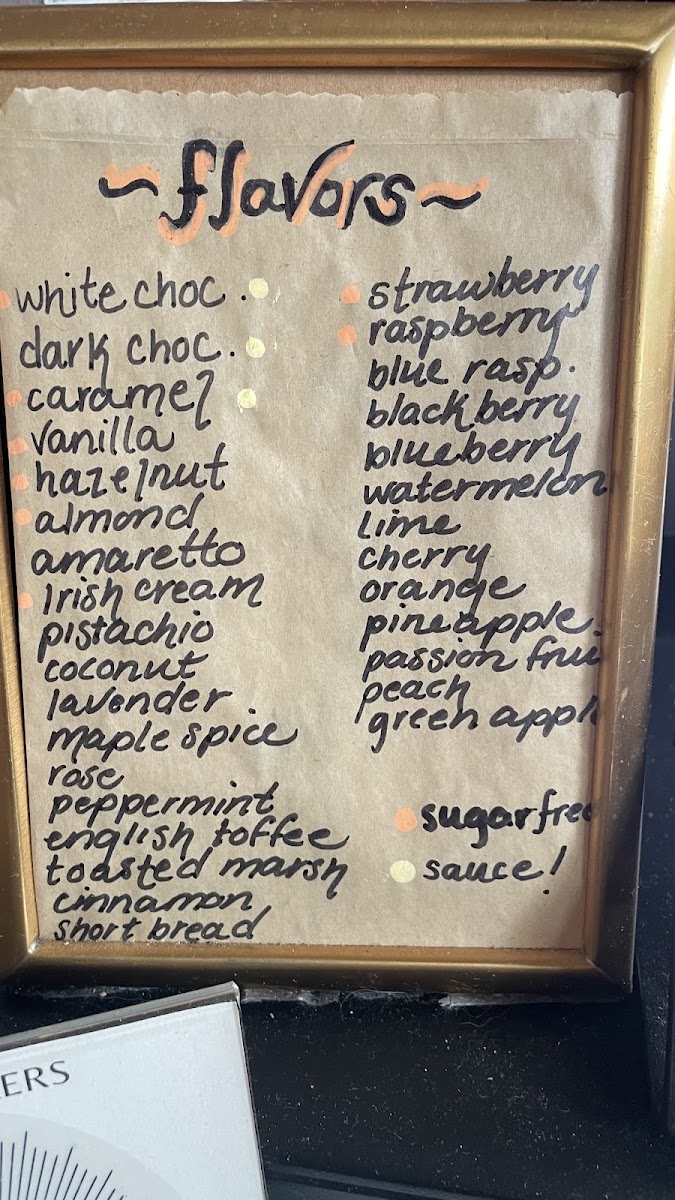 ~flavors~
white choc.
dark choc.
caramel
vanilla
hazelnut
almond
amaretto
Irish cream
pistachio
coconut
lavender
maple spice
rose
peppermint
english toffee
toasted marsh
cinnamon
short bread
strawberry
raspberry
blue rasp.
blackberry
blueberry
watermelon
lime
cherry
orange
pineapple
passion frui
peach
green appl
sugarfree
sauce!
ERS